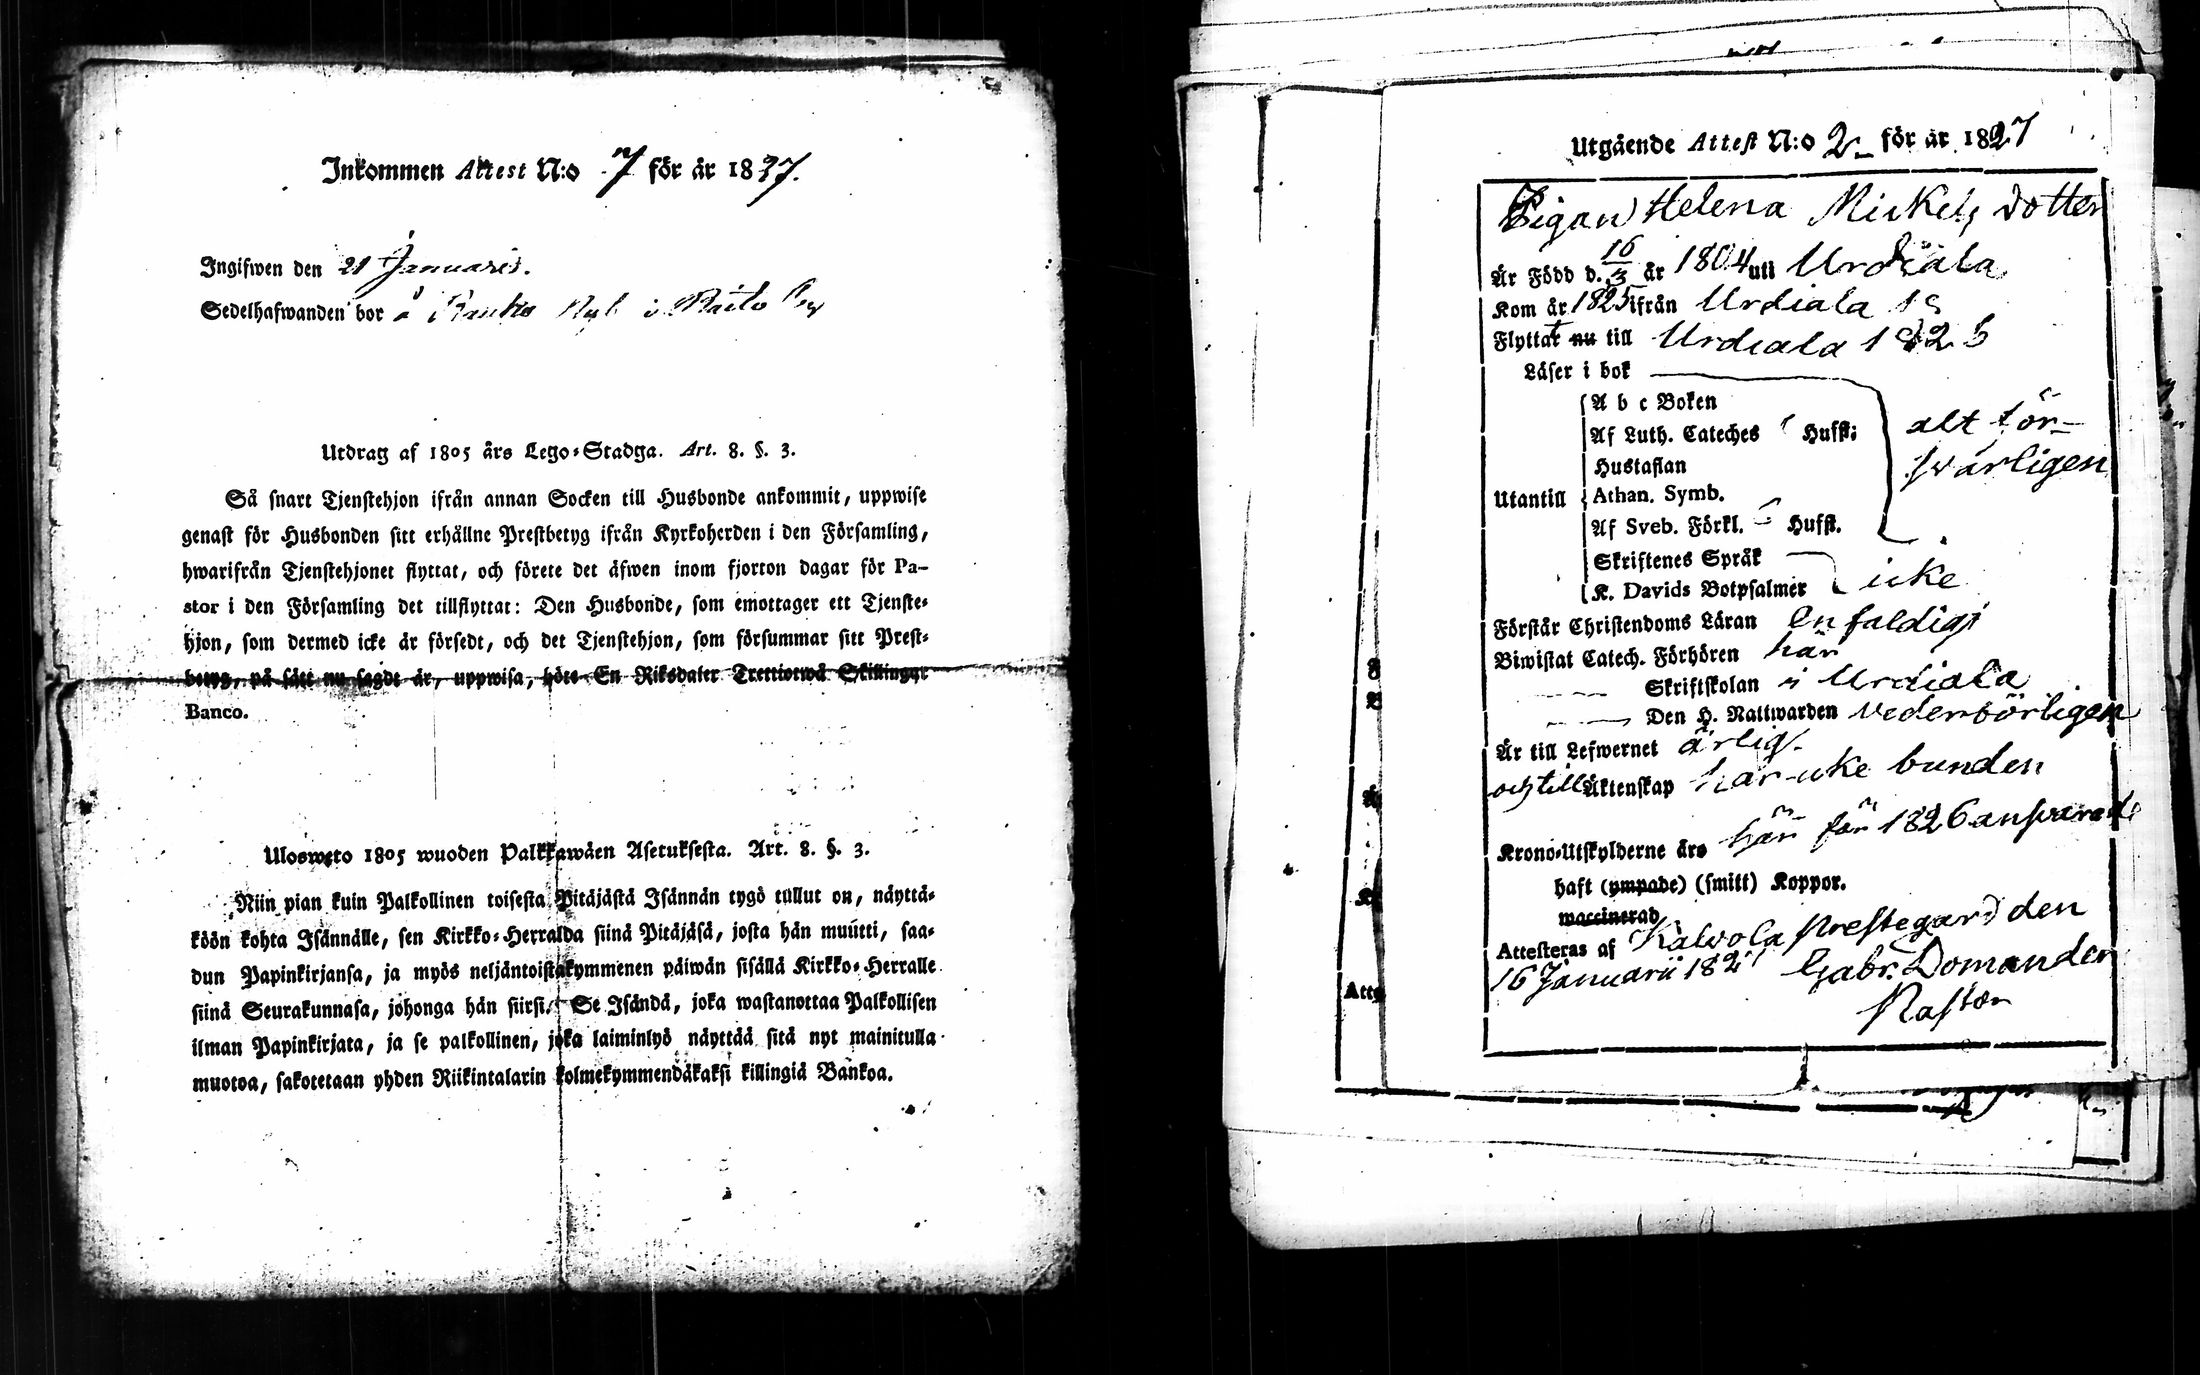 Inkommen Attest N:o 7 för år 1837.
Ingifwen den 21 Januarii.
Sedelhafwanden bor å
Utdrag af 1805 års Lego-Stadga. Art. 8. §. 3.
Så snart Tjenstehjon ifrån annan Socken till Husbonde ankommit, uppwise
genast för Husbonden sitt erhållne Prestbetyg ifrån Kyrkoherden i den Församling,
hwarifrån Tjenstehjonet flyttat, och förete det äfwen inom fjorton dagar för Pa-
stor i den Församling det tillflyttat: Den Husbonde, som emottager ett Tjenste-
hjon, som dermed icke är försedt, och det Tjenstehjon, som försummar sitt Prest-
betyg, på sätt nu sagdt är, uppwisa, böte En Riksdaler Trettiotwå Skillingar
Banco.
Ulosweto 1805 wuoden Palkkawäen Asetuksesta. Art. 8. §. 3.
Niin pian kuin Palkollinen toisesta Pitäjästä Isännän tygö tullut on, näyttä-
köön kohta Isännälle, sen Kirkko-Herralda siinä Pitäjäsä, josta hän muutti, saa-
dun Papinkirjansa, ja myös neljäntoistakymmenen päiwän sisällä Kirkko-Herralle
siinä Seurakunnasa, johonga hän siirsi. Se Isändä, joka wastanottaa Palkollisen
ilman Papinkirjata, ja se palkollinen, joka laiminlyö näyttää sitä nyt mainitulla
muotoa, sakotetaan yhden Riikintalarin kolmekymmendäkaksi killingiä Bankoa.
Utgående Attest N:o 2 för år 1827
Pigan Helena Mickels dotter
Är Född d. 16/3 år 1804 uti Urdiala
Kom år 1825 ifrån Urdiala
Flyttat nu till Urdiala 1826
Läser i bok
A b c Boken
Af Luth. Cateches Hufst: alt för-
Hustaflan swarligen
Utantill Athan. Symb.
Af Sveb. Förkl. Hufst.
Skriftenes Språk
K. Davids Botpsalmer icke
Förstår Christendoms Läran Enfaldigt
Biwistat Catech. Förhören här
Skriftskolan i Urdiala
Den H. Nattwarden vederbörligen
Är till Lefwernet ärlig.
och till Äktenskap här icke bunden
Krono-Utskylderne års här för 1826 answarade
haft (ympade) (smitt) Koppor.
waccinerad
Attesteras af Kalvola Prestegård den
16 Januarii 182 Gabr. Domander
Pastor